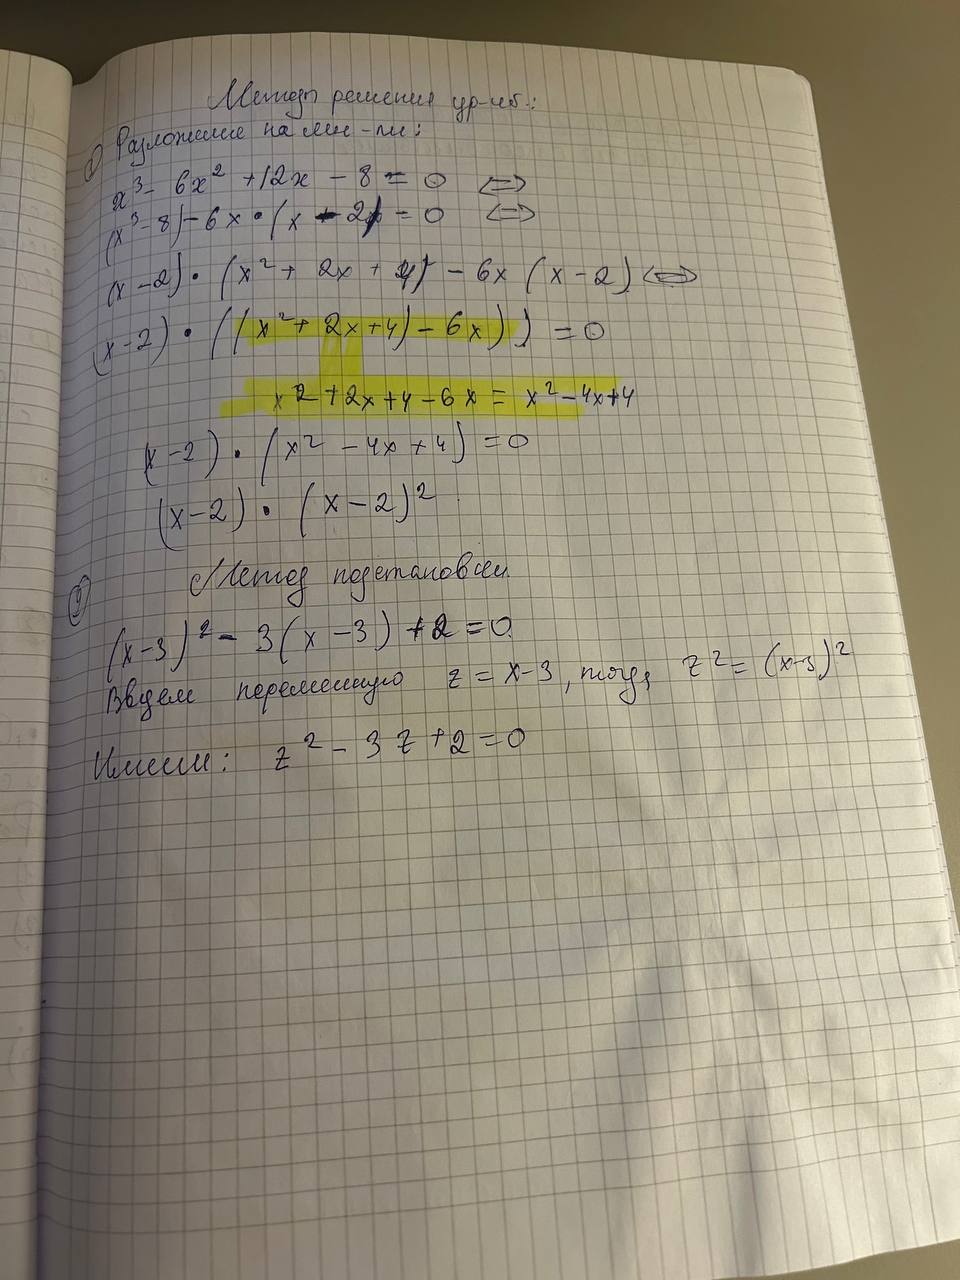 Методы решения ур-иб.:
① Разложение на мн-ли:
x³ - 6x² + 12x - 8 = 0 <=>
(x³ - 8) - 6x · (x - 2) = 0 <=>
(x - 2) · (x² + 2x + 4) - 6x (x - 2) <=>
(x - 2) · ((x² + 2x + 4) - 6x)) = 0
x² + 2x + 4 - 6x = x² - 4x + 4
(x - 2) · (x² - 4x + 4) = 0
(x - 2) · (x - 2)²
Метод подстановки
(x - 3)² - 3(x - 3) + 2 = 0
Введем переменную z = x - 3, тогд z² = (x - 3)²
Имеем: z² - 3z + 2 = 0